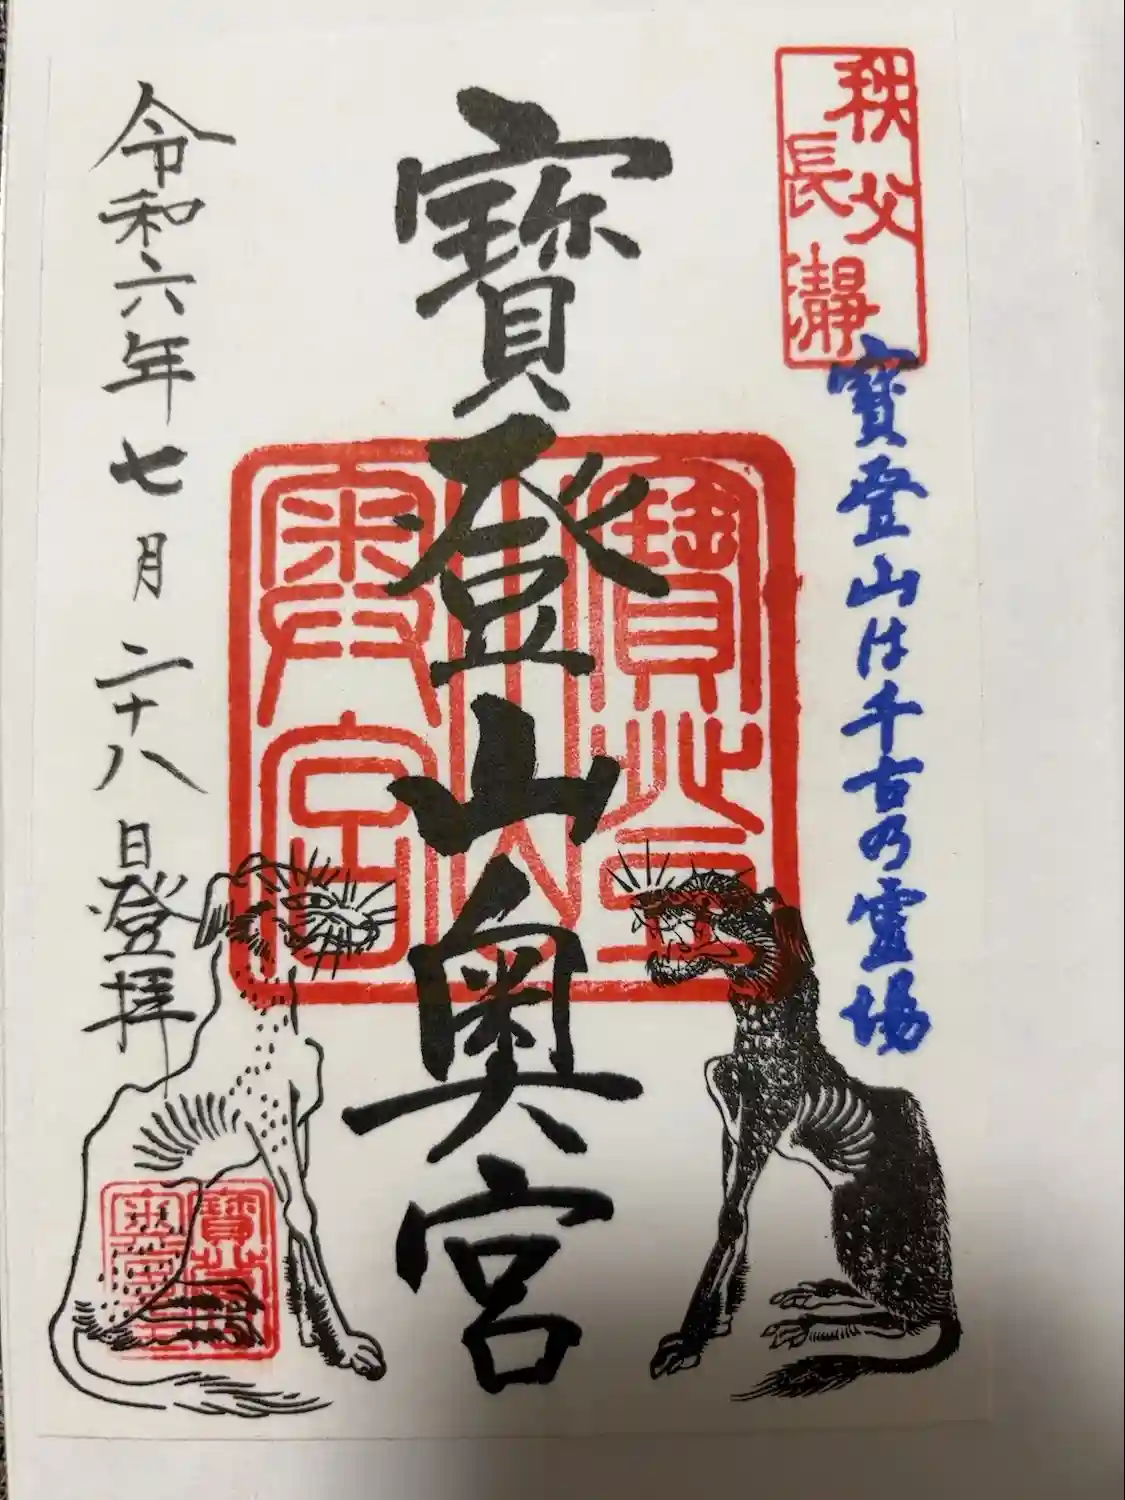 秩父
長瀞
寳登山は千古乃霊場
寳登山奥宮
寳登
山
奥宮
令和六年七月二十八日登拝